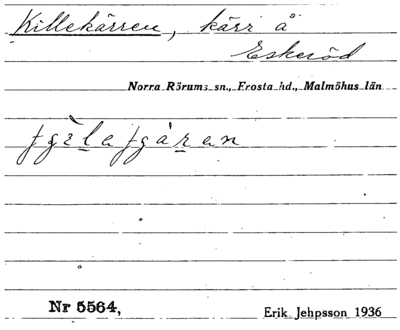 Killekärren, kärr å
Eskeröd
Norra Rörums sn., Frosta hd., Malmöhus län
Nr 5564,
Erik Jehpsson 1936